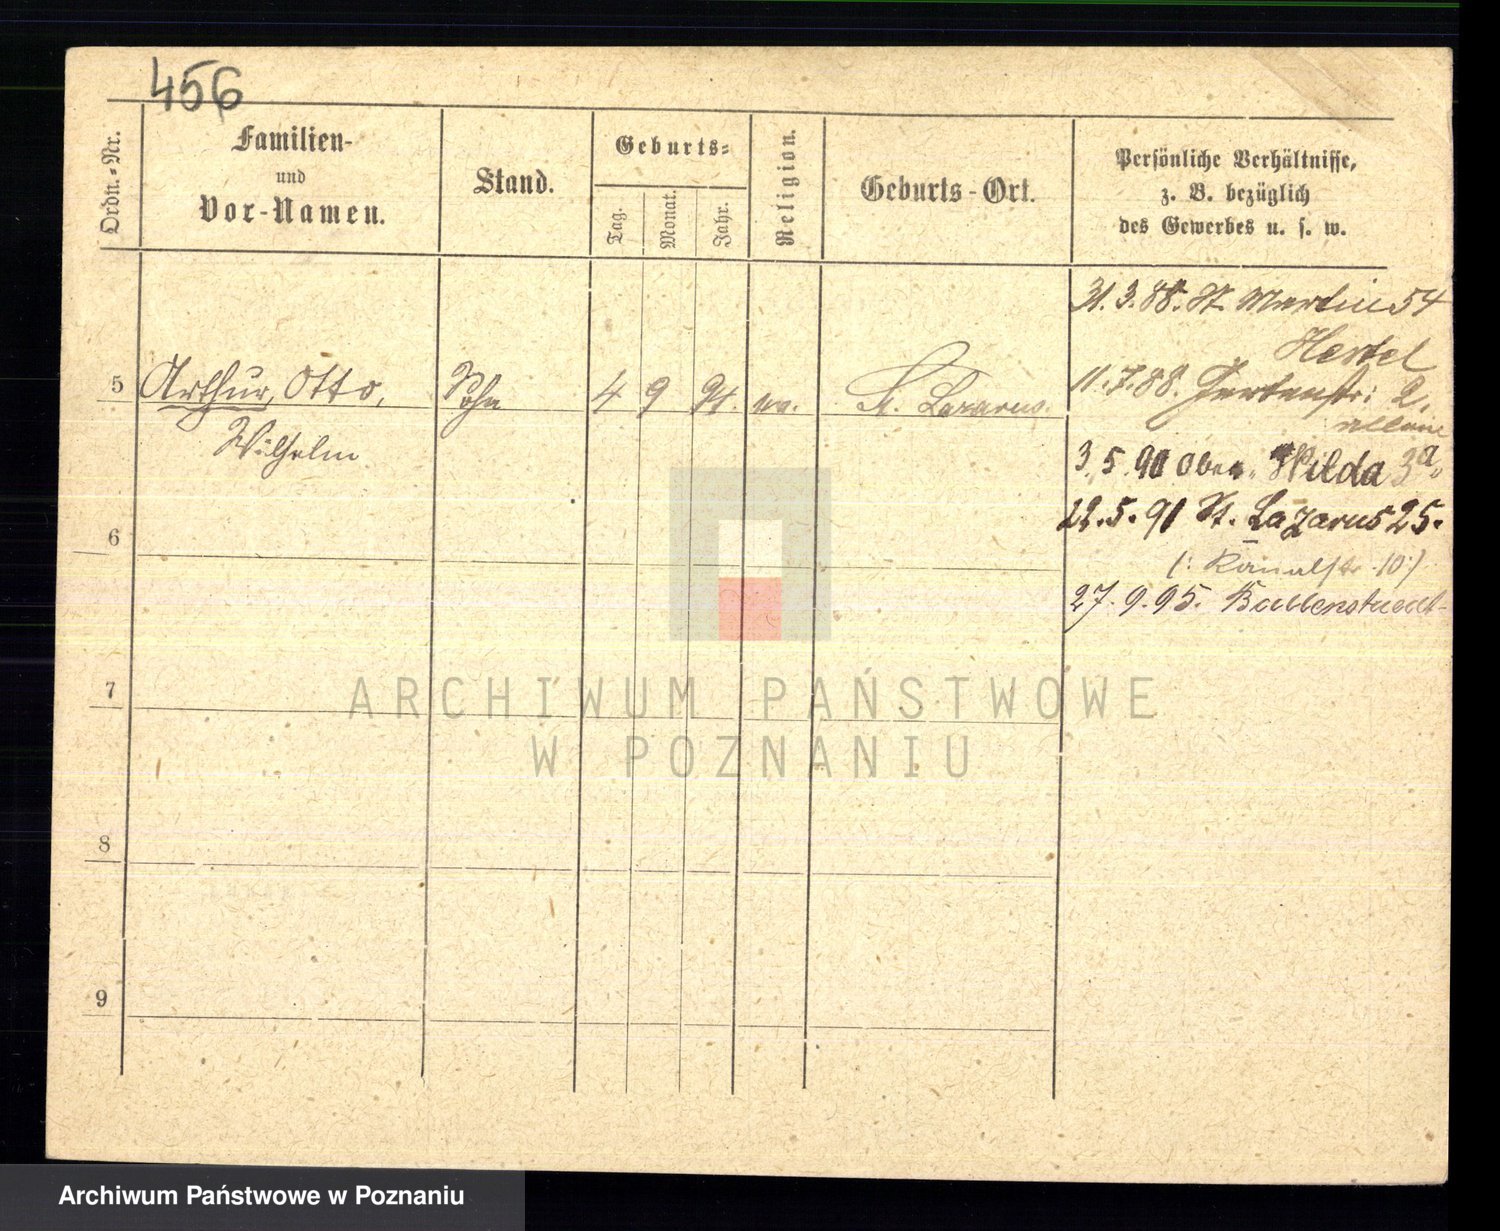 456
Ordn.-Nr.
Familien-
und
Vor-Namen.
Stand.
Geburts-
Tag.
Monat.
Jahr.
Religion.
Geburts-Ort.
Persönliche Verhältnisse,
z. B. bezüglich
des Gewerbes u. s. w.
31.3.88. St. Martin 54
Hertel
5 Arthur, Otto, Sohn 4 9 91. ev. St. Lazarus.
Wilhelm
11.7.88. Gartenstr: 2,
allein
3.5.90 Ober- Wilda 3a
22.5.91 St. Lazarus 25.
(: Kanalstr. 10:)
27.9.95. Ballenstaedt
6
7
8
9
ARCHIWUM PAŃSTWOWE
W POZNANIU
Archiwum Państwowe w Poznaniu